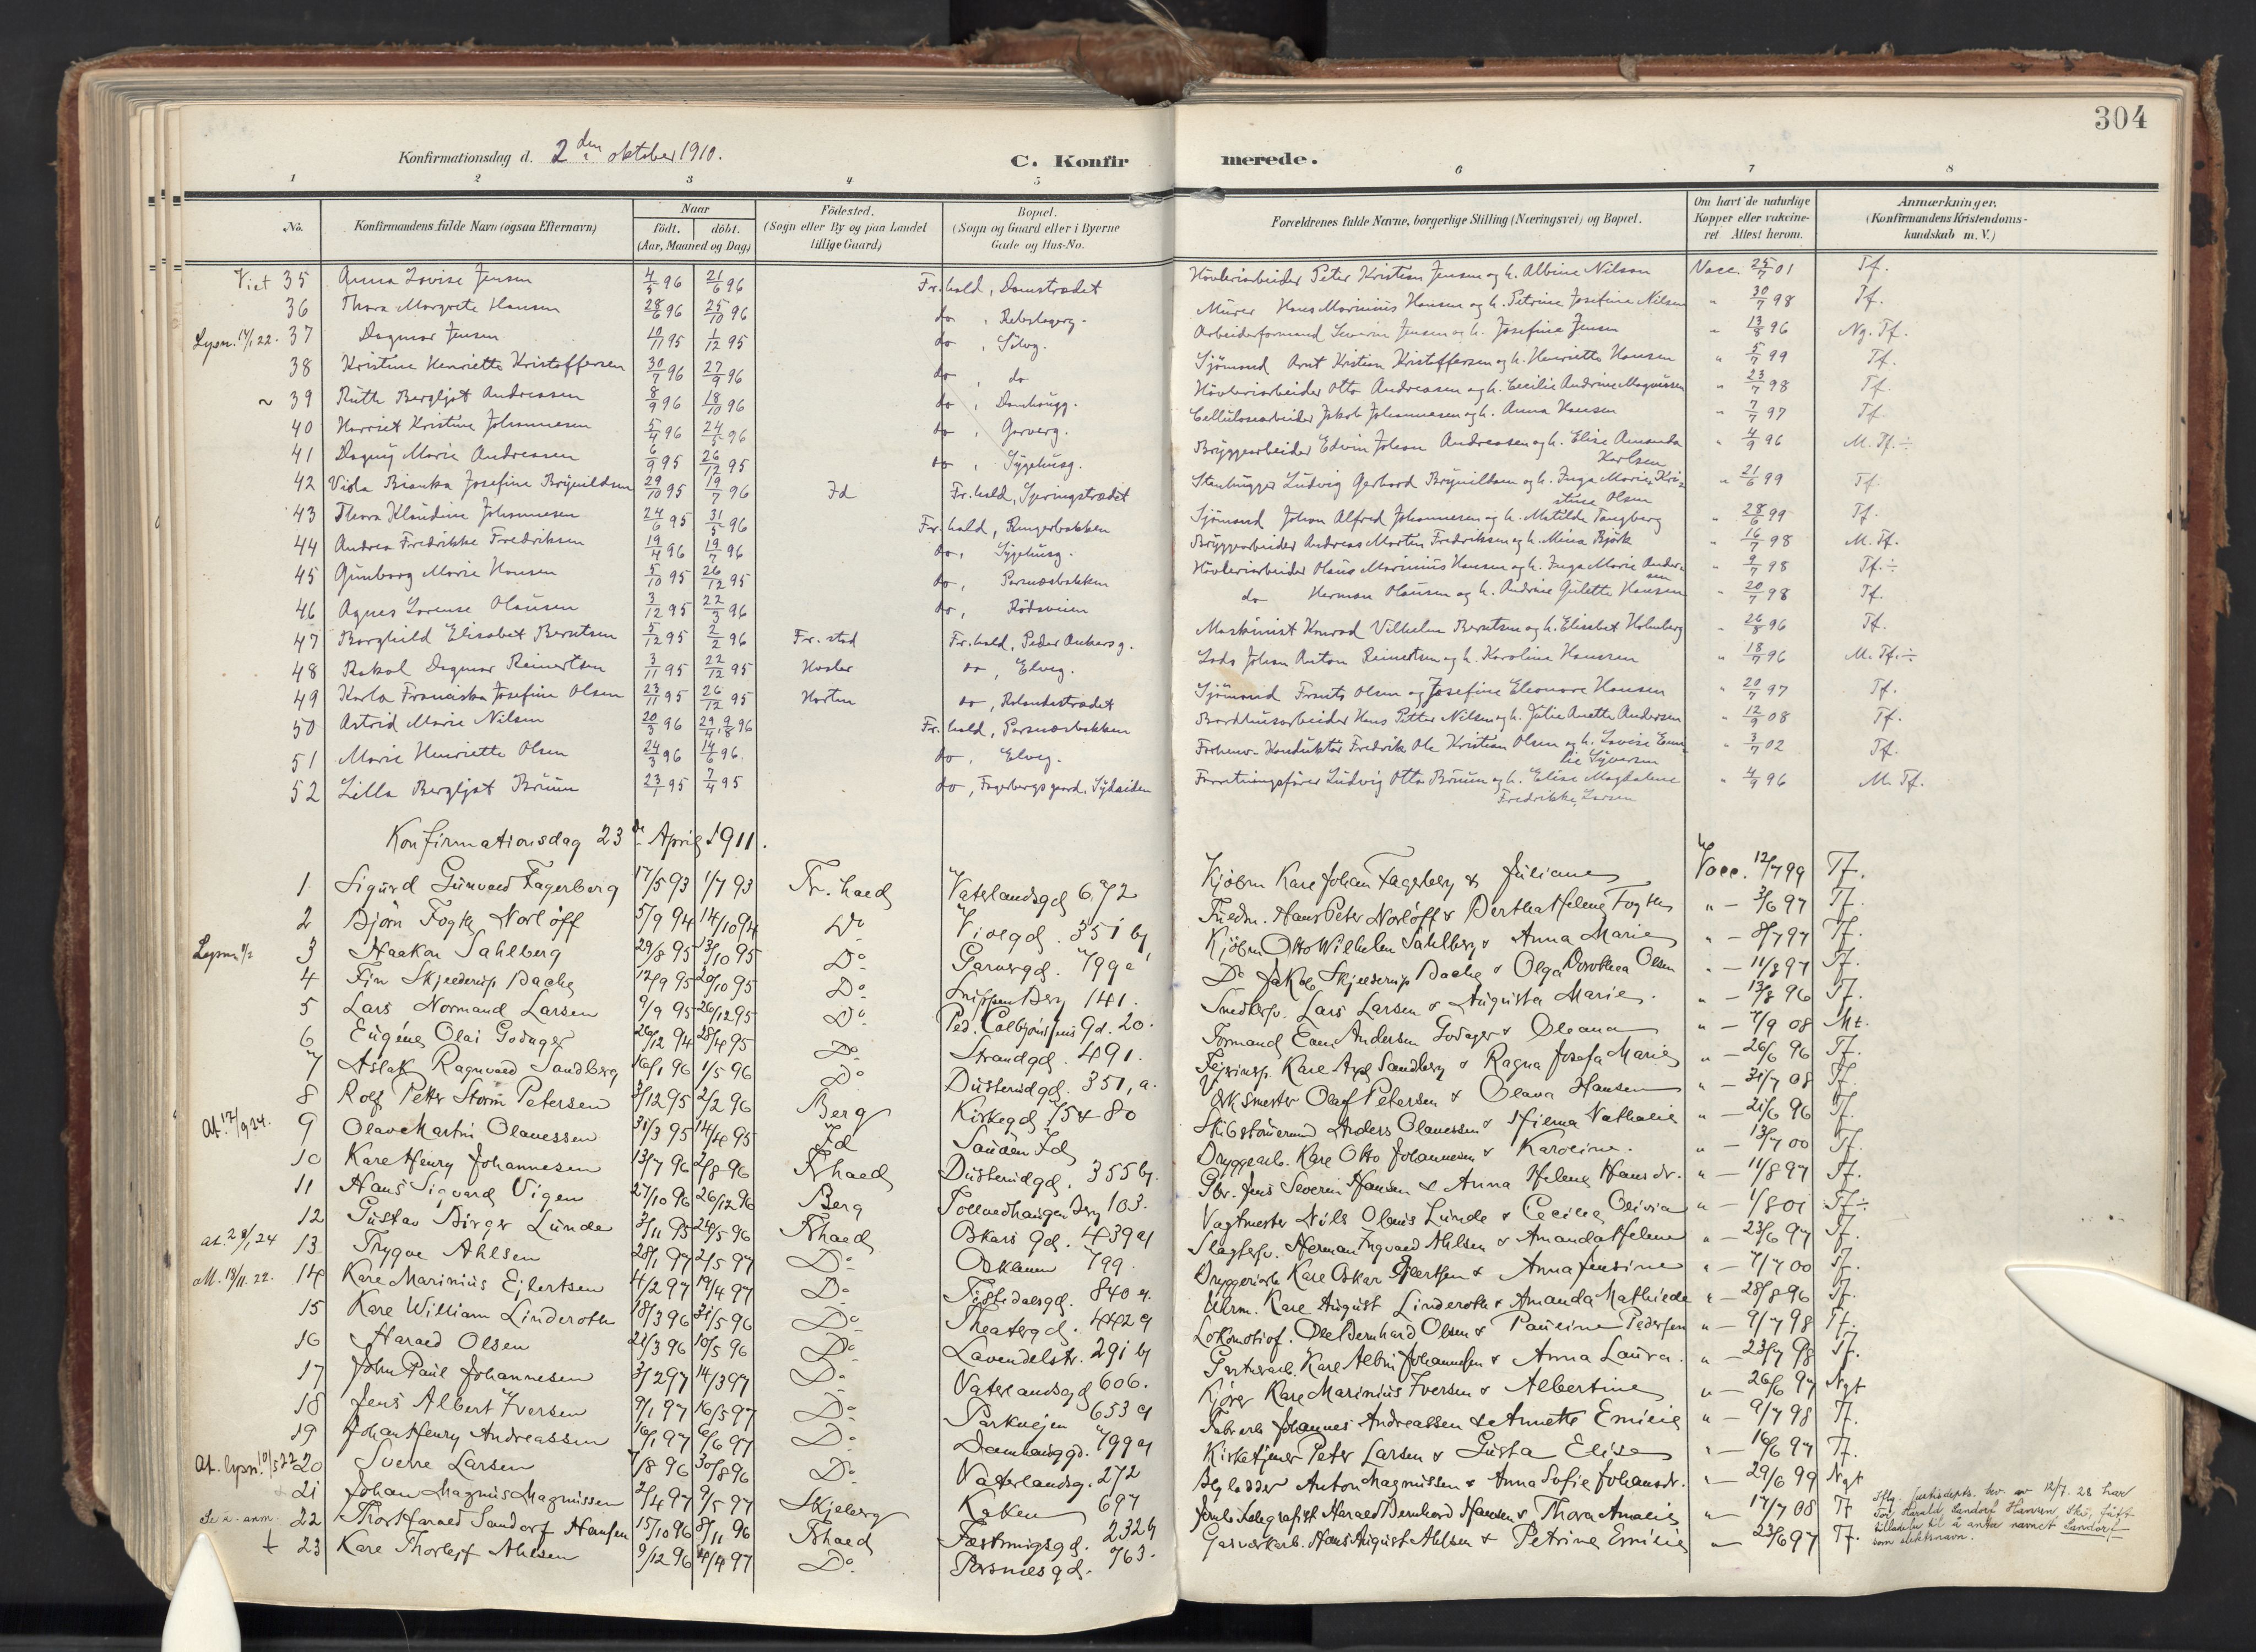 304
Konfirmationsdag d. 2den oktober 1910. C. Konfirmerede.
1 2 3 4 5 6 7 8
No. Konfirmandens fulde Navn (ogsaa Efternavn) Naar født. døbt. (Aar, Maaned og Dag) Fødested. (Sogn eller By og paa Landet tillige Gaard) Bopæl. (Sogn og Gaard eller i Byerne Gade og Hus-No. Forældrenes fulde Navne, borgerlige Stilling (Næringsvei) og Bopæl. Om havt de naturlige Kopper eller vakcineret Attest herom. Anmærkninger. (Konfirmandens Kristendomskundskab m. V.)
35 Anna Lovise Jensen 4/5 96 21/6 96 Fr.hald, Damstrædet Høvleriarbeider Peter Kristian Jensen og h. Albine Nilsen Vacc. 25/7 01 Tf.
36 Thora Margrete Hansen 28/6 96 25/10 96 do, Rebslagerg. Murer Hans Marinius Hansen og h. Petrine Josefine Nilsen " 30/7 98 Tf.
Lysn. 17/1 22. 37 Dagmar Jensen 10/11 95 1/12 95 do, Arbeiderformand Severin Jensen og h. Josefine Jensen " 13/8 96 Ng. Tf.
38 Kristine Henriette Kristoffersen 30/7 96 27/9 96 do, do Sjømand Arnt Kristian Kristoffersen og h. Henriette Hansen " 5/7 99 Tf.
~ 39 Ruth Bergljot Andreassen 8/9 96 18/10 96 do, Damhaugg. Høvleriarbeider Otto Andreassen og h. Cecilie Andrine Magnussen " 23/7 98 Tf.
40 Harriet Kristine Johannesen 5/4 96 24/5 96 do, Garverg. Cellulosearbeider Jakob Johannesen og h. Anna Hansen " 7/7 97 Tf.
41 Dagny Marie Andreassen 6/9 95 26/12 95 do, Sygehusg. Bryggearbeider Edvin Johan Andreassen og h. Elise Amanda Karlsen " 4/9 96 M. Tf. ÷
42 Viola Bianka Josefine Brynildsen 29/10 95 19/7 96 Id Fr.hald, Steinhugger Ludvig Gerhard Brynildsen og h. Inga Marie Kristine Olsen " 21/6 99 Tf.
43 Thora Klaudine Johannesen 24/6 95 31/5 96 Fr.hald, Sjømand Johan Alfred Johannesen og h. Matilde Tangberg " 28/6 99 Tf.
44 Andrea Fredrikke Fredriksen 19/4 96 19/7 96 do, Sygehusg. Bryggearbeider Andreas Martin Fredriksen og h. Mina Bjørk " 16/7 98 M. Tf.
45 Gunborg Marie Hansen 5/10 95 26/12 95 do, Porsnæsbakken Høvleriarbeider Olaus Marinius Hansen og h. Inga Marie Andersen " 9/7 98 Tf. ÷
46 Agnes Lovense Olausen 3/12 95 22/3 96 do, Rødsveien do Herman Olausen og h. Andrine Gulette Hansen " 20/7 98 Tf.
47 Borghild Elisabet Berntsen 5/12 95 2/2 96 Fr.stad Fr.hald, Peder Ankersg. Maskinist Konrad Vilhelm Berntsen og h. Elisabet Holmberg " 26/8 96 Tf.
48 Rakel Dagmar Reinertsen 3/11 95 22/12 95 do, Elveg. Lods Johan Anton Reinertsen og h. Karoline Hansen " 18/7 96 M. Tf. ÷
49 Karla Franciska Josefine Olsen 23/11 95 26/12 95 Horten do, Sjømand Frants Olsen og Josefine Eleonore Hansen " 20/7 97 Tf.
50 Astrid Marie Nilsen 20/3 96 29/4, 9/8 96 Fr.hald, Porsnæsbakken Bordhusarbeider Hans Petter Nilsen og h. Julie Anette Andersen " 12/9 08 Tf.
51 Marie Henriette Olsen 24/3 96 14/6 96. do, Elveg. Forhenv. Konduktør Fredrik Ole Kristian Olsen og h. Lovise Emilie Syversen " 3/7 02 Tf.
52 Lilla Bergljot Bruun 23/1 95 7/4 95 do, Fagerbergs gaard, Sydsiden Forretningsfører Ludvig Otto Bruun og h. Elise Magdalene Fredrikke Larsen " 4/9 96 M. Tf.
Konfirmationsdag 23de April 1911.
1 Sigurd Gunvald Fagerberg 17/5 93 1/7 93 Fr.hald Vaterlandsgd 672 Kjøbm Karl Johan Fagerberg & Juliane Vacc. 12/7 99 Tf.
2 Bjørn Fogth Norløff 5/9 94 14/10 94 Do Violgd. 351 b Hans Peter Norløff & Bertha Helene Fogth " — 3/6 97 Tf.
Lysn. 3 Haakon Sahlberg 29/8 95 13/10 95 Do Garvergd. 799 a Kjøbm Otto Wilhelm Sahlberg & Anna Marie " — 8/7 97 Tf.
4 Fin Skjelderup Bache 12/9 95 20/10 95 Do 141. Do Jakob Skjelderup Bache & Olga Dorothea Olsen " — 11/8 97 Tf.
5 Lars Normand Larsen 9/9 95 26/12 95 Do Ped. Colbjørnsens Gd. 20. Smedksv. Lars Larsen & Augusta Marie. " — 13/8 96 Tf.
6 Eugène Olai Godager 26/12 94 28/4 95 Do Strandgd. 491. Formand Andersen Godager & Oleana " — 7/9 08 Mt.
7 Aslak Ragnvald Sandberg 16/1 96 1/5 96 Do 351, a. Karl Axel Sandberg & Ragna Josefa Marie " — 26/6 96 Tf.
8 Rolf Petter Storm Petersen 3/12 95 2/2 96 Berg Kirkegd 75 & 80 Værksmester Olaf Petersen & Olava Hansen " — 31/7 08 Tf.
At. 12/9 24. 9 Olav Martin Olavessen 31/3 95 14/4 95 Id Sauøen Id Anders Olavessen & Nathalie " — 21/6 96 Tf.
10 Karl Henry Johannesen 13/7 96 2/8 96 Frhald 355 b. Bryggearb. Karl Otto Johannesen & Karoline. " — 13/7 00 Tf.
11 Hans Sigvard Vigen 27/10 96 26/12 96 Berg 103. Gbr. Jens Severin Hansen & Anna Helene Hansdr. " — 11/8 97 Tf.
12 Gustav Birger Lunde 3/11 95 24/5 96 Frhald Oskars gd. 439 a Vagtmester Nils Olaus Lunde & Cecilie Olivia " — 1/8 01 Tf ÷
at. 28/1 24 13 Trygve Ahlsen 28/1 97 2/5 97 Do Oskleven 799. Slagtersv. Herman Ingvald Ahlsen & Amanda Helene " — 23/6 97 Tf.
M. 18/11. 22. 14 Karl Marinius Eilertsen 4/2 97 19/4 97 Do Tistedalsgd. 840 a. Bryggeriarb Karl Oskar Eilertsen & Anna Jensine " — 7/7 00 Tf.
15 Karl William Linderoth 18/3 96 31/5 96 Do Theatergd. 442 a Uhrm. Karl August Linderoth & Amanda Mathilde " — 28/8 96 Tf.
16 Harald Olsen 21/3 96 10/5 96 Do Lavendelstr. 291 b Lokomotivf. Ole Bernhard Olsen & Pauline Pedersen " — 9/7 98 Tf.
17 John Paul Johannesen 3/2 97 14/3 97 Do Vaterlandsgd 606. Karl Albin Johannesen & Anna Laura. " — 23/7 98 Tf.
18 Jens Albert Iversen 9/1 97 16/5 97 Do Parkvejen 653 a Kjører Karl Marinius Iversen & Albertine " — 26/6 97 Ngt
19 Johan Henry Andreassen 16/1 97 6/6 97 Do Damhauggd. 799 a Fabrarb Johannes Andreassen & Annette Emilie " — 9/7 98 Tf.
At. lysn. 10/5 22 20 Sverre Larsen 7/8 96 30/8 96 Do Vaterlandsg. 272 Kirketjener Peter Larsen & Gusta Elise " — 16/6 97 Tf.
21 Johan Magnus Magnussen 2/4 97 9/5 97 Skjeberg Kaken 697 Anton Magnussen & Anna Sofie Johansdr. " — 29/6 99 Ngt
Se u. anm. 22 Thor Harald Sandorf Hansen 15/10 96 8/11 96 Frhald Fæstningsgd. 232 b Jernb.telegrafist Harald Bernhard Hansen & Thora Amalie " 17/7 08 Tf Iflg. Justisdepts. brv. av 12/7. 28 har Tor Harald Sandorf Hansen, Ski, fått tilladelse til å anta navnet Sandorf som slektsnavn.
+ 23 Karl Thorleif Ahlsen 9/12 96 4/4 97 Do Porsnesgd. 763. Gasværkarb. Hans August Ahlsen & Petrine Emilie " — 23/6 97 Tf.